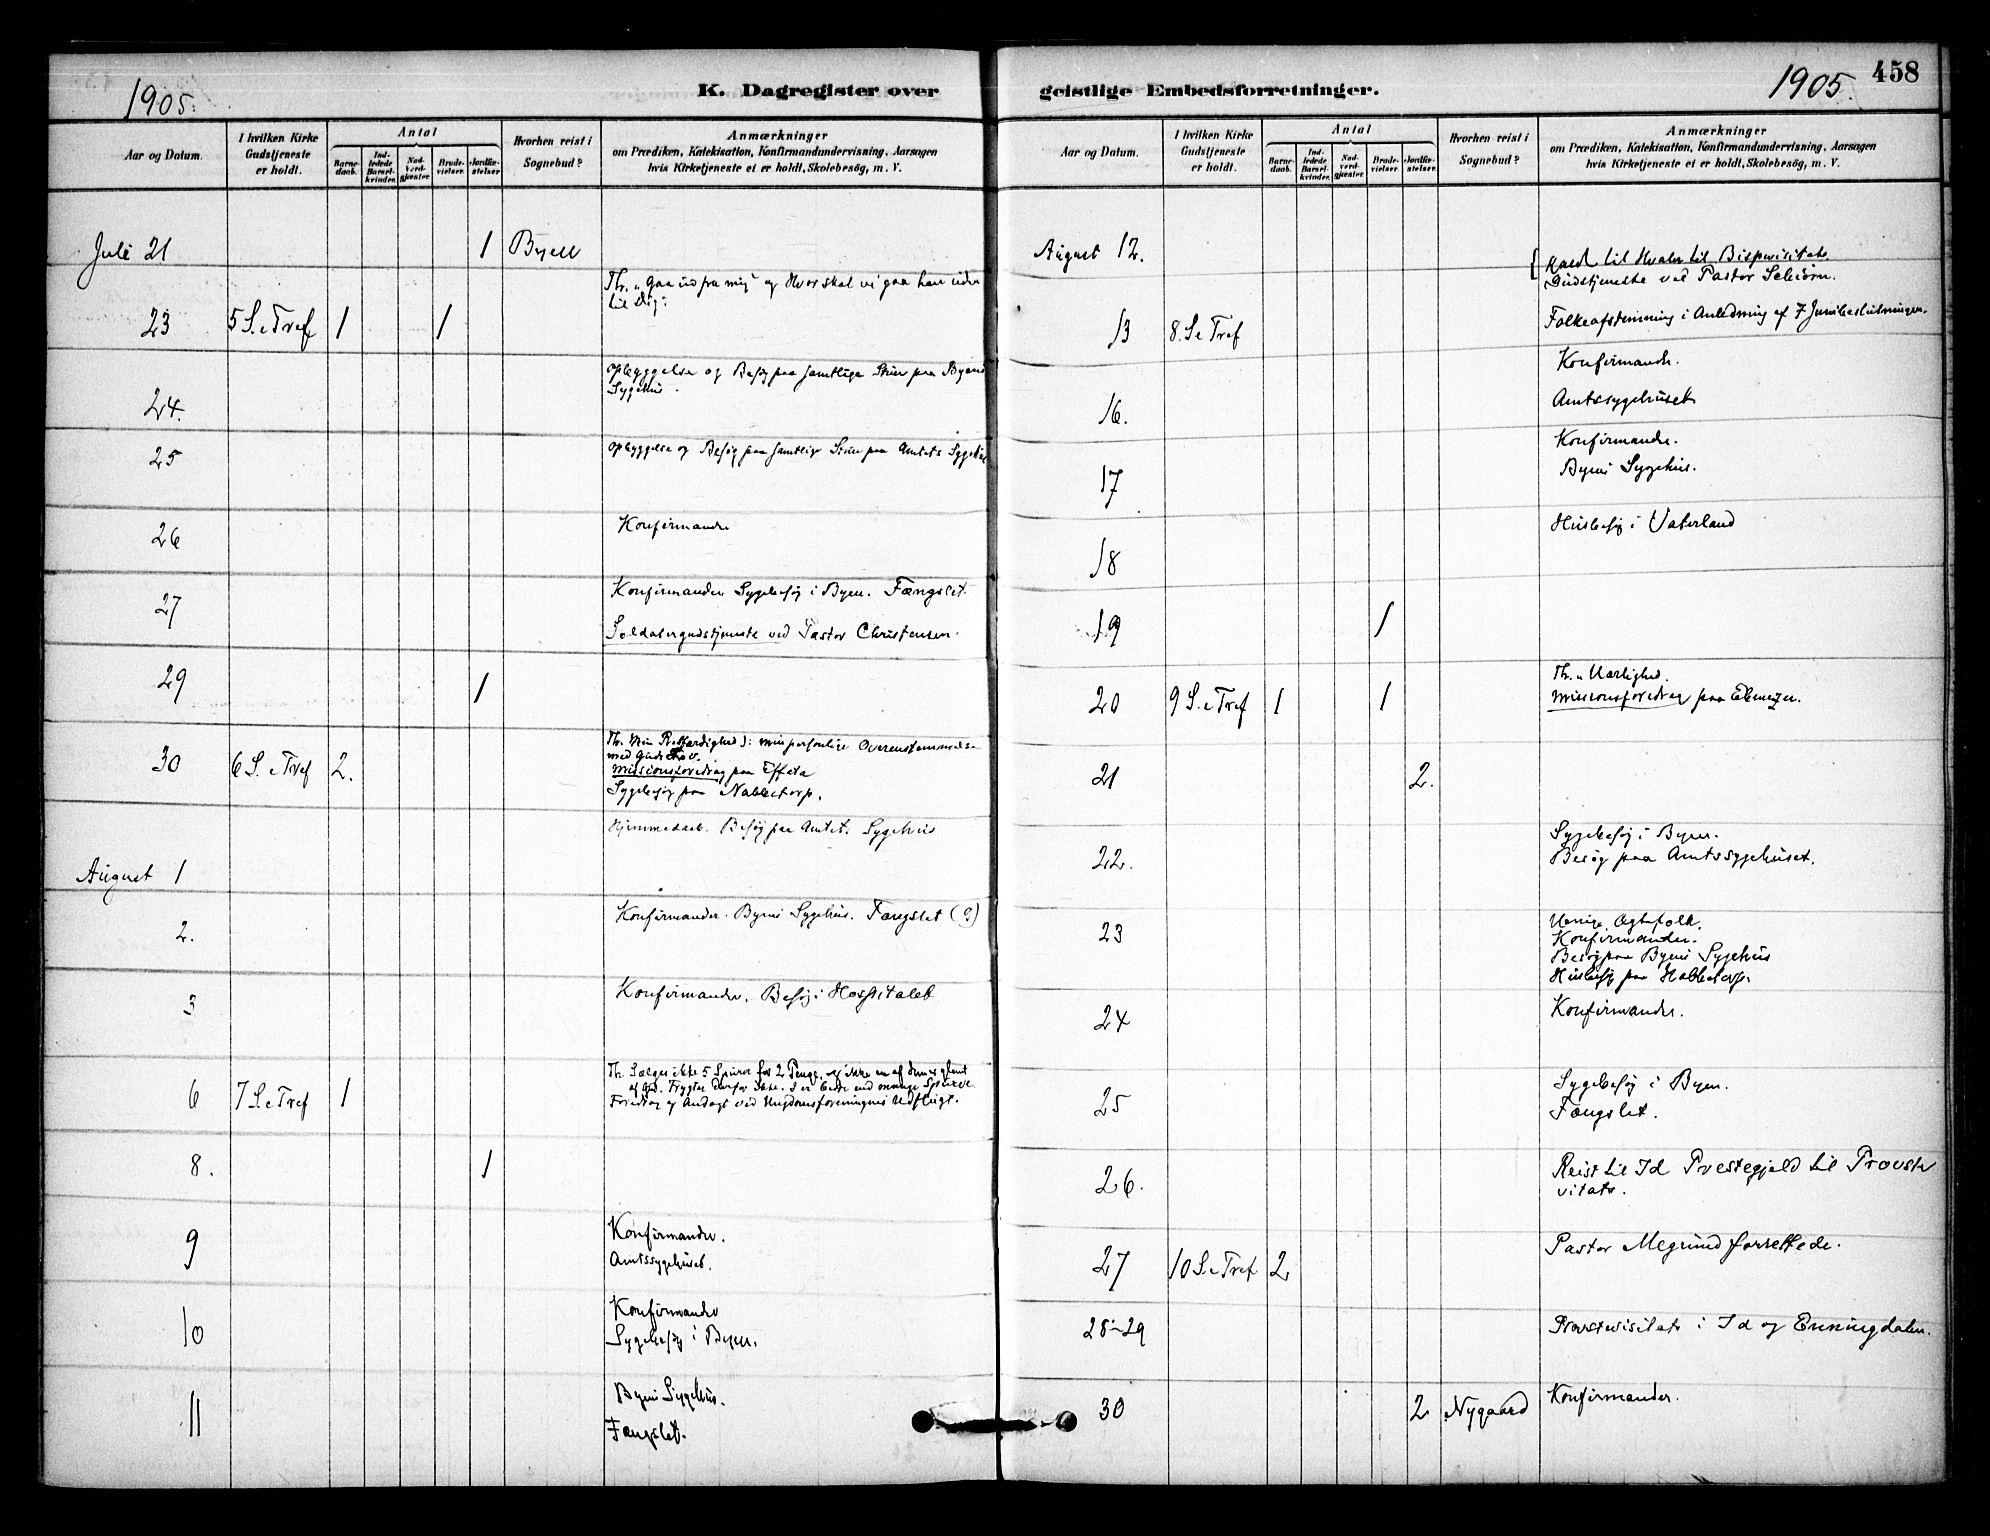 1905.
K. Dagregister over
Aar og Datum.
I hvilken Kirke Gudstjeneste er holdt.
Antal
Barnedaab.
Indledede Barselkvinder.
Nadverdgjæster.
Brudevielser.
Jordfæstelser
Hvorhen reist i Sognebud?
Anmærkninger
om Prædiken, Katekisation, Konfirmandundervisning, Aarsagen
hvis Kirketjeneste ei er holdt, Skolebesøg, m. V.
Juli 21 1 Byell
Th. "Gaa ud fra mig" og Hvor skal vi gaa hen uden
til Dig:
23 5 S. e Tref 1 1
opbyggelse og Besøg paa samtlige Stuer paa Byens
Sygehus.
24.
25 opbyggelse og Besøg paa samtlige Stuer paa Amtets Sygehus
26 Konfirmander
27 Konfirmander Sygebesøg i Byen. Fængslet.
Soldatergudstjeneste ved Pastor Christensen.
29 1
Th. Min Retfærdighed): min personlige Overensstemmelse
med Guds Lov.
30 6 S. e Tref 2. Missionsforedrag paa Effata
Sygebesøg paa Nabbetorp.
Hjemmedaab. Besøg paa Amtet. Sygehus
August 1
2. Konfirmander. Byens Sygehus. Fængslet (9)
3 Konfirmander. Besøg i Hospitalet
Th. Sælges ikke 5 Spurve for 2 Penge, og ikke en af dem er glemt
af Gud. Frygter derfor ikke. I er bedre end mange Spurve.
6 7 S. e Tref 1 Foredrag og Andagt ved Ungdomsforeningens Udflugt.
8. 1
9 Konfirmander.
Amtssygehuset.
10 Konfirmander
Sygebesøg i Byen.
11 Byens Sygehus.
Fængslet.
geistlige Embedsforretninger.
1905.
458
Aar og Datum.
I hvilken Kirke Gudstjeneste er holdt.
Antal
Barnedaab.
Indledede Barselkvinder.
Nadverdgjæster.
Brudevielser.
Jordfæstelser.
Hvorhen reist i Sognebud?
Anmærkninger
om Prædiken, Katekisation, Konfirmandundervisning, Aarsagen
hvis Kirketjeneste ei er holdt, Skolebesøg, m. V.
August 12. til Hvaler til Bispevisitats
Gudstjeneste ved Pastor
13 8. S e Tref Folkeafstemning i Anledning af 7 Junibeslutningen.
Konfirmander.
16. Amtssygehuset
Konfirmander.
17 Byens Sygehus.
18 Husbesøg i Vaterland
19 1
Th. "Uærlighed.
20 9 S. e Tref 1 1 Missionsforedrag paa Ebenezer.
21 2.
22. Sygebesøg i Byen.
Besøg paa Amtssygehuset.
23 Uenige Ægtefolk.
Konfirmander.
Besøg paa Byens Sygehus
Husbesøg paa Nabbetorp.
24 Konfirmander.
25 Sygebesøg i Byen.
Fængslet.
26. Reist til Id Prestegjeld til Provste
vitats.
27 10 S. e Tref 2 Pastor Megrund forrettede.
28-29 Provstevisitats i Id og Enningdalen.
30 2 Nygaard Konfirmander.